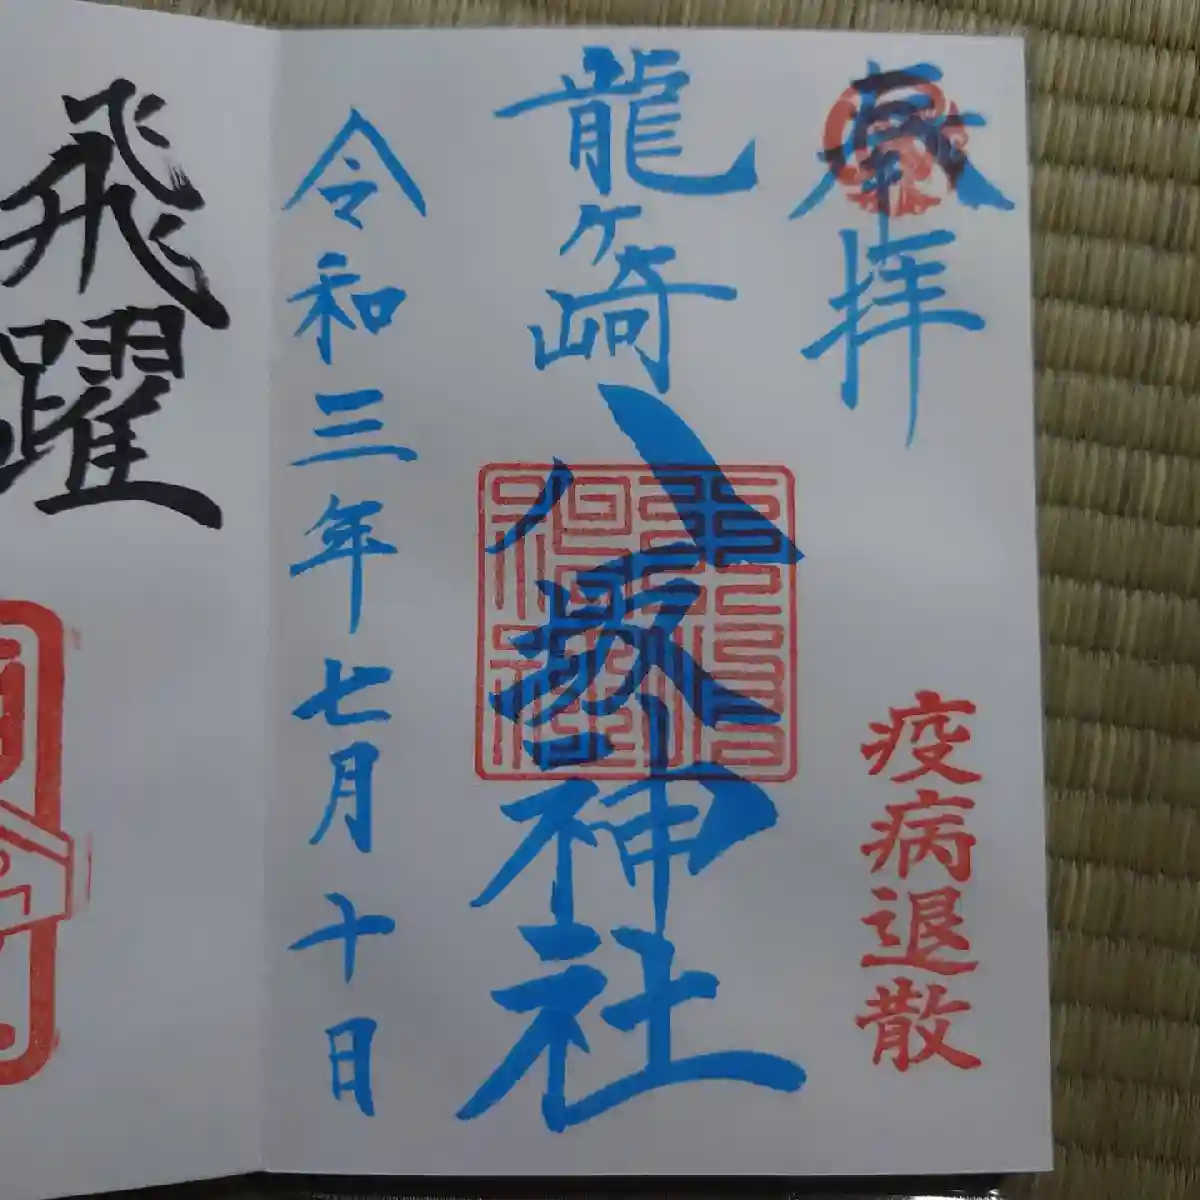 奉拝
疫病退散
龍ヶ崎八坂神社
令和三年七月十日
飛躍